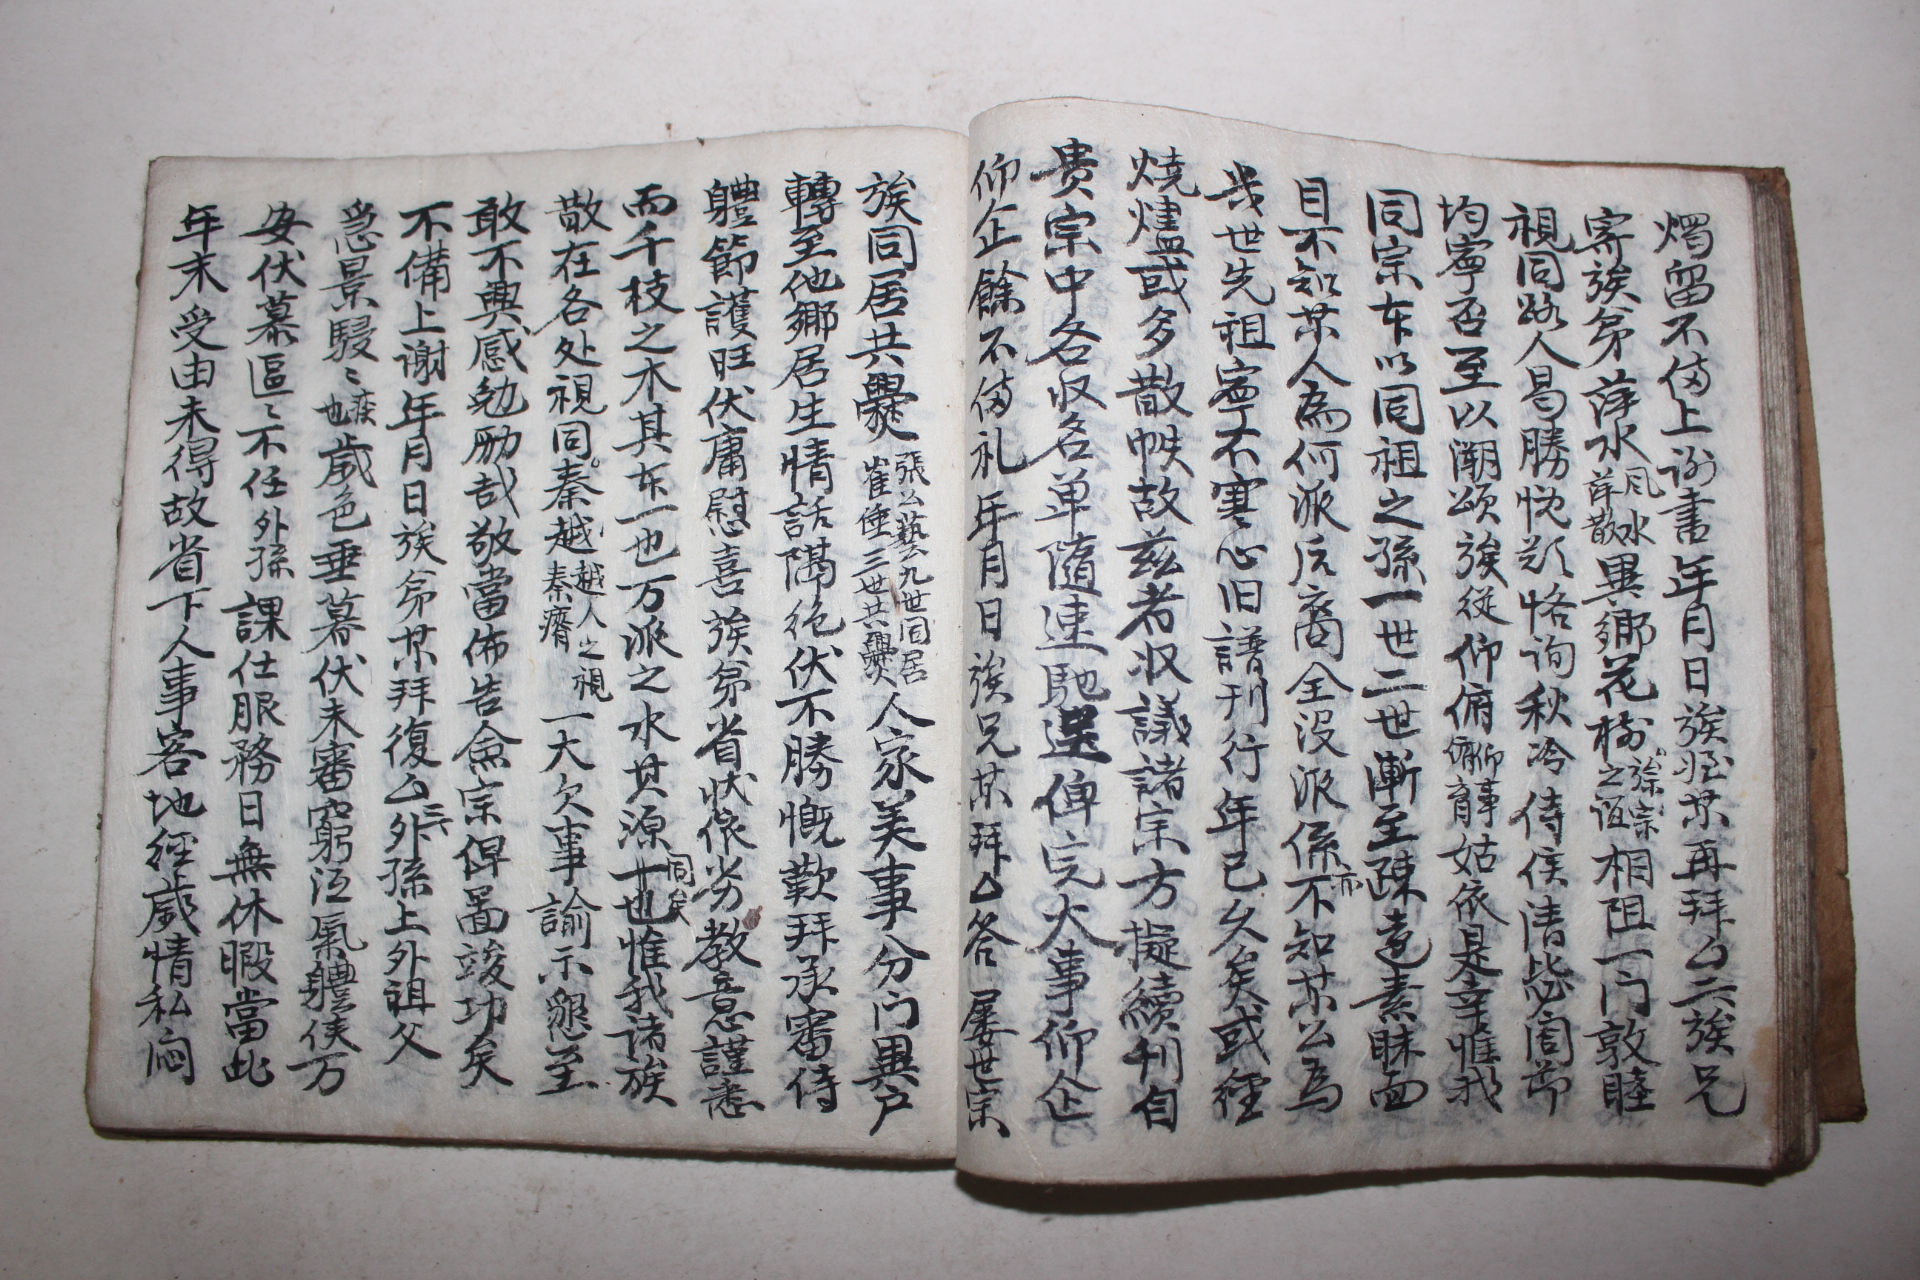 燭留不備上謝書年月日族侄某再拜△六族兄
寄族弟萍水風水萍散異鄉花樹之誼相阻一门敦睦
視同路人曷勝忱歎恪询秋冷侍候清毖閤节
均寧否至以溯頌族從仰俯仰事俯育姑依是幸惟我
同宗本以同祖之孫一世二世漸至踈遠素昧面
目不知某人為何派后裔全没派係亦不知某公為
幾世先祖寧不寒心旧譜刊行年已久矣或經
燒燼或多散帙故玆者収議諸宗方擬續刊自
贵宗中各収名单隨速馳送俾完大事仰企
仰企餘不備礼年月日族兄某拜△答屡世宗
族同居共爨張公藝九世同居崔倕三世共爨人家美事分门異户
轉至他鄉居生情話隔绝伏不勝慨歎拜承審侍
軆節護旺伏庸慰喜族弟省状依劣教意謹悉
而千枝之木其本一也万派之水其源一也同矣惟我诸族
散在各处視同秦越越人之視秦瘠一大欠事諭示懇至
敢不興感勉勵哉敬當佈告僉宗俾啚竣功矣
不備上谢年月日族弟某拜復△三六外孫上外祖父
忽景駸〻疾也歲色垂暮伏未審窮沍氣軆侯万
安伏慕區〻不任外孫課仕服務日無休暇當此
年末受由未得故省下人事客地經歲情私悶